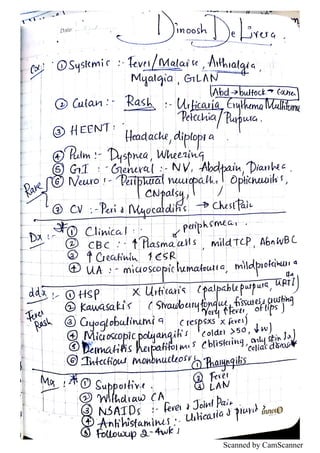 Dinoosh De Livera.
Cx: ① Systemic :- Fever/Malaise, Arthralgia,
Myalgia, GLAN
Abd → buttock →
② Cutan :- Rash :- Urticaria, Erythema Multiforme
Petechia/ Purpura.
③ HEENT: Headache, diplopia
④ Pulm :- Dyspnea, Wheezing
⑤ GI :- General :- NV, Abdpain, Diarrhea
Rare
⑥ Neuro :- Peripheral neuropath, Opticneuritis,
CNpalsy,
⑦ CV :- Peri & Myocarditis → Chest Pain
Dx :- ① Clinical : periphsmear
② CBC :- ↑ Plasma cells, mild TCP, AbnWBC
③ ↑ Creatinin ↑ ESR
④ UA :- microscopic hematouria, mild proteinuria
ddx :- ① HSP X Urticaris (palpable purpura, URTI)
Fever Rash
② Kawasakis (Strawberry tongue, fissures, crusting
Very ↑ fever, of lips)
③ Cryoglobulinemia (respsxs x fever)
④ Microscopic polyangitis (older >50, ↓w)
⑤ Dermatitis herpatiformis (blistering, only skin)
celiac disease
⑥ Infectious mononucleosis ① Pharyngitis
② Fever
③ LAN
Mg :- ① Supportive.
② Withdraw CA
③ NSAIDs :- Fever & Joint Pain
④ Antihistamines :- Urticaria & pruritis
⑤ followup 2-4wks
Scanned by CamScanner